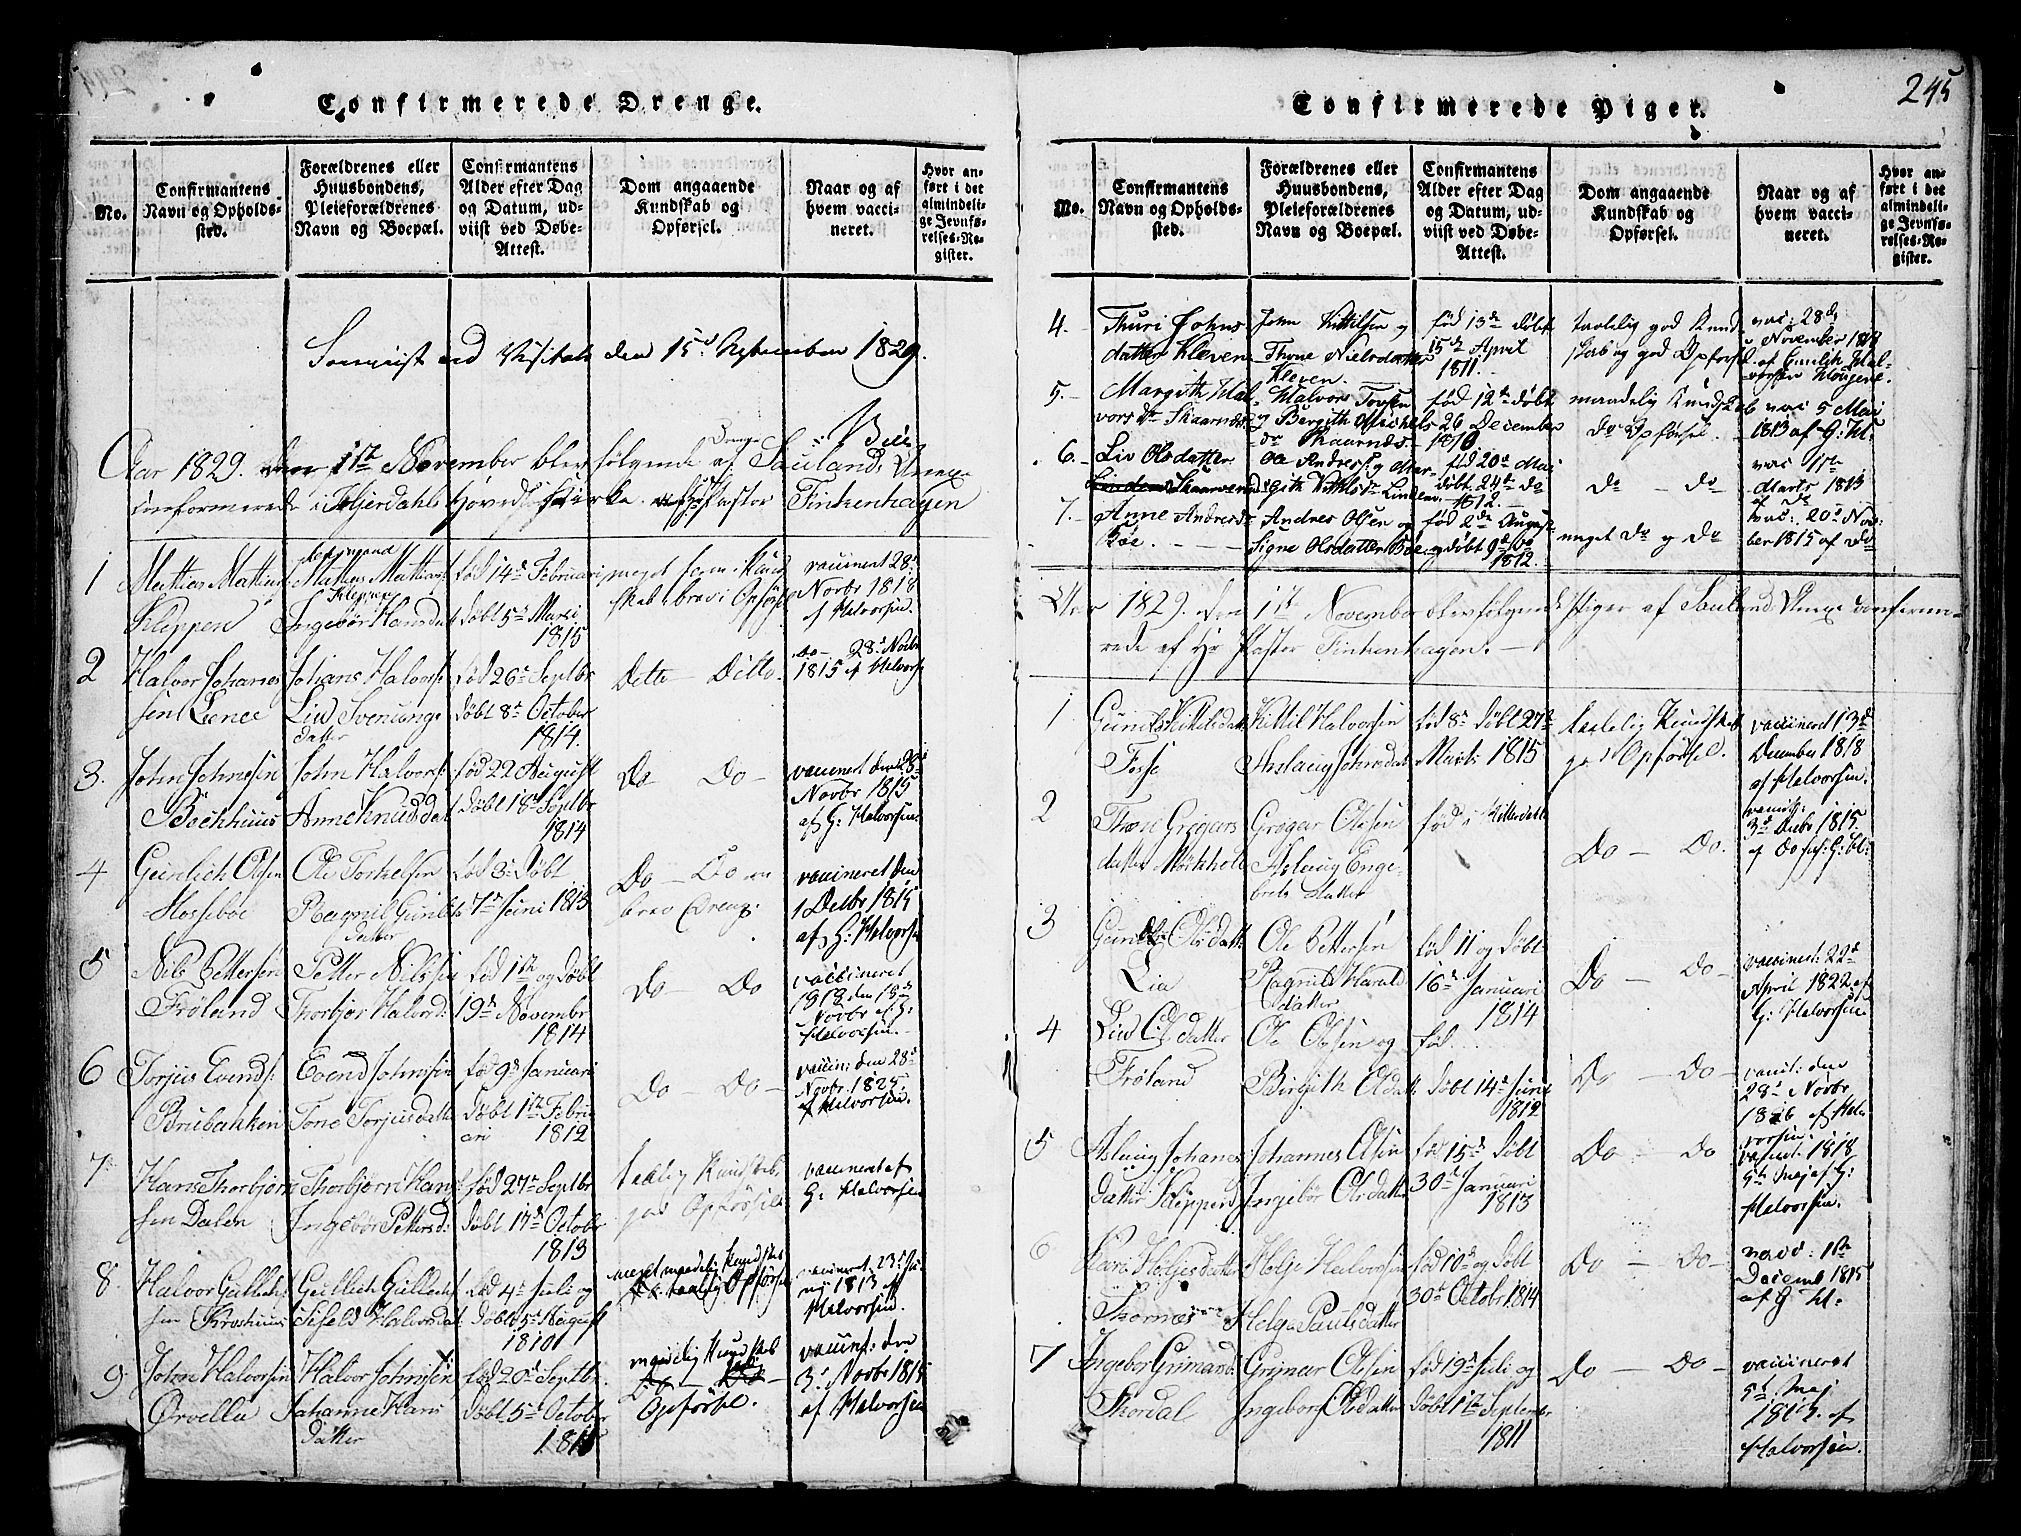 245
Confirmerede Drenge.
No.
Confirmantens
Navn og Opholds-
sted.
Forældrenes eller
Huusbondens,
Pleieforældrenes
Navn og Boepæl.
Confirmantens
Alder efter Dag
og Datum, ud-
viist ved Døbe-
Attest.
Dom angaaende
Kundskab og
Opførsel.
Naar og af
hvem vacci-
neret.
Hvor an-
ført i det
almindeli-
ge Jevnfø-
relses-Re-
gister.
ved Visitats den 15d September 1829.
Aar 1829. den 1ste November blev følgende Drenge af Saulands Annex
confirmerede i Hjerdahls Hoved Kirke af Hr Pastor Finkenhagen
1
Mathias Mathias
Kleppen
Mathias Mathias
Kleppen
Ingebor Hansdat
fød 14de Februari
døbt 5te Marti
1815
meget god i Kund
skab & brav i Opførsel
vaccineret 28.
Novbr 1818
af Halvorsen.
2
Halvor Johanes
sen Lienee
Johans Halvors
Liv Svenungs
datter
fød 26de Septbr
døbt 8de October
1814.
Dette — Ditto.
Do — 28de Novbr
1815 af Halvors
3.
John Johnsen
Böckhuus
John Halvors
Anne Knudsdat
fød 22 August
døbt 18de Septbr
1814
Do Do —
vaccineret den 28de
Novbr 1815
af G: Halvorsen.
4
Gunlich Olsen
Hosseboe
Ole Torkelsen
Ragnil Gunlichs
datter
fød 3: døbt
7de Juni 1813
Do — Do en
brav Dreng.
vaccineret den
1 Decbr 1815
af G: Halvorsen
5
Nils Pettersen
Fröland
Petter Nilssen
Thorbjør Halvorsd
fød 1ste og døbt
19de Novembr
1814
Do — Do
vaccineret
1818 den 18de
Novbr af G:
Halvorsen.
6
Torjus Evends:
Brubakken
Evend Johnsen
Tone Torjusdatt
fød 9de Januari
døbt 1ste Febru
ari 1812
Do — Do —
vaccin: den 28de
Novbr. 1825.
af Halvorsen.
7
Hans Thorbjørn
sen Dalen
Thorbjørn Hans
Ingebör Pettersd:
fød 27de Septbr
døbt 17de Octobr
1813
taalelig Kundskab
god Opførsel
vaccineret af
G: Halvorsen
8
Halvor Gullechs
sen Kroshuus
Gullech Gullechs
Sigeld Halvorsdat
fød 4de Juli og
døbt 5te August
1810
meget maadelig Kundskab
taalelig Opførsel
vaccineret 23: Ju
ny 1813 af
Halvorsen.
9.
John Halvorsen
Ørvella
Halvor Johnsen
Johanne Hans
datter
fød 20de Septbr.
døbt 5te October
1815
maadelig Kundskab
Do — Do —
Opførsel.
vaccint: den
3: Novbr 1815
af Halvorsen
Confirmerede Piger.
No.
Confirmantens
Navn og Opholds-
sted.
Forældrenes eller
Huusbondens,
Pleieforældrenes
Navn og Boepæl.
Confirmantens
Alder efter Dag
og Datum, ud-
viist ved Døbe-
Attest.
Dom angaaende
Kundskab og
Opførsel.
Naar og af
hvem vacci-
neret.
Hvor an-
ført i det
almindeli-
ge Jevnfø-
relses-Re-
gister.
4.
Thuri Johns
datter Kleven
John Kittilsen og
Thone Nielsdatter
Kleven.
fød 13de døbt
15de April
1811.
taalelig god Kund
skab og god Opførsel
vac: 28de
November 1818
af Gunlik Hal-
vorsen
5.
Margith Hal
vorsdr Skaarnæs
Halvor Tovsen
og Bergith Michels
dr Skaarnæs
fød 12te døbt
26 December
1810
maadelig Kundskab
do Opførsel.
vac 5 Mai
1813 af G: H:
6.
Liv Olsdatter
Ole Anders: og Mar-
gith Kittilsdr Linden
fød 20de Mai
døbt 24de do
1812.
do — do
vac 11te
Marts 1813
af do
7.
Anne Andersdr
Bøe.
Andres Olsen og
Signe Olsdatter Bøe
fød 2den August
og døbt 9de do
1812.
meget do og do
vac: 20de Nov:
ber 1815 af do
Aar 1829. den 1ste November blev følgende Piger af Sauland Annex confirme-
rede af Hr Pastor Finkenhagen. —
1
Gunild Kittelsdat
Fosse
Kittil Halvorsen
Aslaug Johnsdat
fød 8de døbt 27de
Marts 1815
taalelig Kundskab
god Opførsel.
vaccineret 13de
December 1818
af Halvorsen.
2
Thone Gregars
datter Mörkhole
Gregar Olsen
Aslaug Enge-
brets datter
fød i Hitterdahl
Do — Do.
3de Decbr 1815
3
Gunild Olsdatt
Lia
Ole Pettersen
Ragnild Harald
datter
fød 11 og døbt
16de Januari
1814
Do — Do —
vaccineret: 22de
April 1822 af
G: Halvorsen
4
Liv Olsdatter
Fröland
Ole Olsen og
Birgith Olsdatt
fød
døbt 14de Juni
1812
Do — Do —
vaccint: den
28de Novbr
1816 af Hal
vorsen.
5
Aslaug Johanes
datter Kleppen
Johannes Olsen
Ingebör Olsdatter
fød 15de døbt
30de Januari
1813
Do — Do
vaccint: 1818
5te Maj af G:
Halvorsen.
6
Kari Holjesdatter
Thornæs
Holje Halvorsen
Helga Paulsdatter
fød 10de og døbt
30te Octobr 1814
Do — Do —
vacc: 1ste
Decemb 1815
af G: H:
7
Ingebor Grimarsd
Thordal
Grimar Olsen
Ingeborg Olsdatter
fød 19de Juli og
døbt 1ste September
1811
Do — Do —
vaccineret
5te Maj
1813. af
Halvorsen.